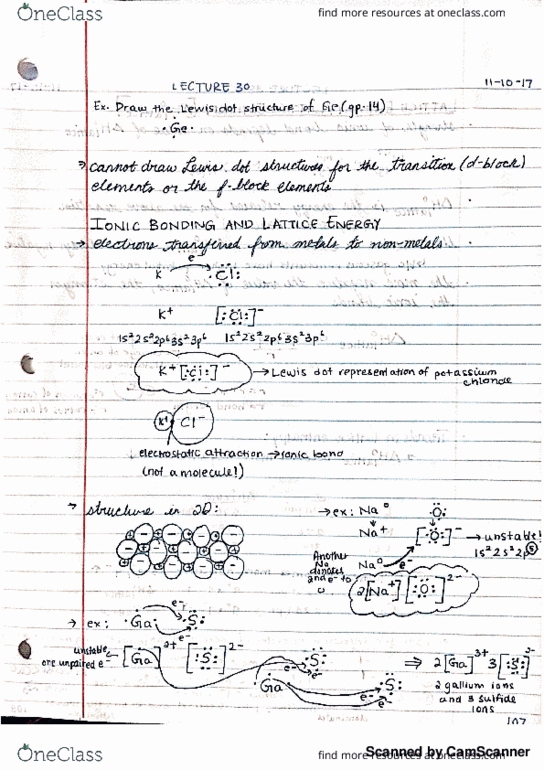 OneClass
find more resources at oneclass.com
LECTURE 30
11-10-17
Ex. Draw the Lewis dot structure of Ge (gp. 14)
·Ge·
→ cannot draw Lewis dot structures for the transition (d-block)
elements or the f-block elements
IONIC BONDING AND LATTICE ENERGY
→ electrons transferred from metals to non-metals.
e⁻
K· :Cl:
K⁺ [:Cl:]⁻
1s²2s²2p⁶3s²3p⁶ 1s²2s²2p⁶3s²3p⁶
K⁺[:Cl:]⁻ → Lewis dot representation of potassium
chloride
K⁺ Cl⁻
electrostatic attraction → ionic bond
(not a molecule!)
→ structure in 2D:
→ ex: Na° :O:
Na⁺ [:O:]⁻ → unstable!
1s²2s²2p⑤
Another
Na
donates
Na° e⁻
2[Na⁺] [:O:]²⁻
→ ex: ·Ga· e⁻ :S:
e⁻
unstable
one unpaired e⁻
[Ga·]²⁺ [:S:]²⁻
:S:
e⁻
·Ga·
e⁻
e⁻
:S:
⇒ 2[Ga]³⁺ 3[:S:]²⁻
2 gallium ions
and 3 sulfide
ions
107
Scanned by CamScanner
OneClass
find more resources at oneclass.com